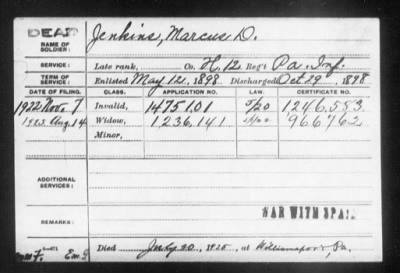 DEAD
NAME OF SOLDIER: Jenkins, Marcus D.
SERVICE: Late rank, Co. H, 12 Reg't Pa. Inf.
TERM OF SERVICE: Enlisted May 12, 1898 Discharged Oct 29, 1898
DATE OF FILING. CLASS. APPLICATION NO. LAW. CERTIFICATE NO.
1922 Nov. 7 Invalid, 1475101 1246.553
1925 Aug. 14 Widow, 1.236,141 966762
Minor,
ADDITIONAL SERVICES:
WAR WITH SPAIN
REMARKS:
Died 1925, at Williamsport, Pa.